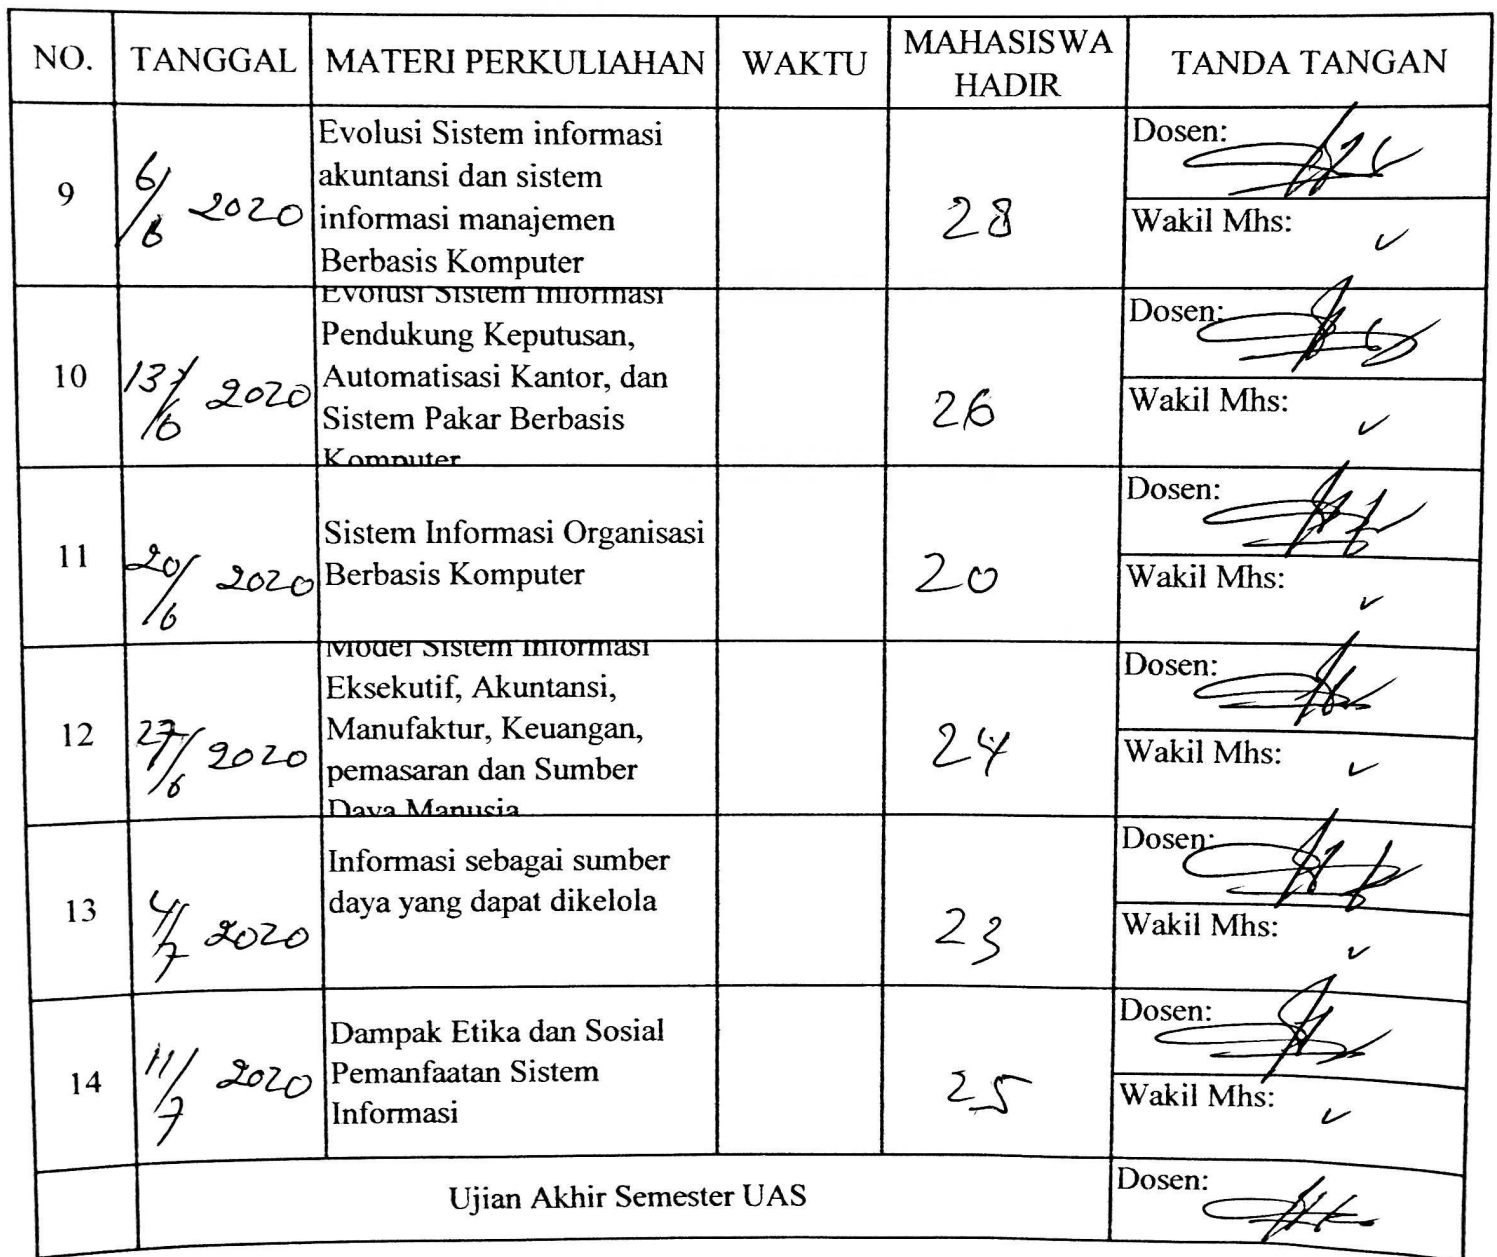 NO. TANGGAL MATERI PERKULIAHAN WAKTU MAHASISWA HADIR TANDA TANGAN
9
6/6 2020
Evolusi Sistem informasi
akuntansi dan sistem
informasi manajemen
Berbasis Komputer
28
Dosen:
Wakil Mhs:
10
13/6 2020
Evolusi Sistem Informasi
Pendukung Keputusan,
Automatisasi Kantor, dan
Sistem Pakar Berbasis
Komputer
26
Dosen:
Wakil Mhs:
11
20/6 2020
Sistem Informasi Organisasi
Berbasis Komputer
20
Dosen:
Wakil Mhs:
12
27/6 2020
Model Sistem Informasi
Eksekutif, Akuntansi,
Manufaktur, Keuangan,
pemasaran dan Sumber
Daya Manusia
24
Dosen:
Wakil Mhs:
13
4/7 2020
Informasi sebagai sumber
daya yang dapat dikelola
23
Dosen:
Wakil Mhs:
14
11/7 2020
Dampak Etika dan Sosial
Pemanfaatan Sistem
Informasi
25
Dosen:
Wakil Mhs:
Ujian Akhir Semester UAS
Dosen: